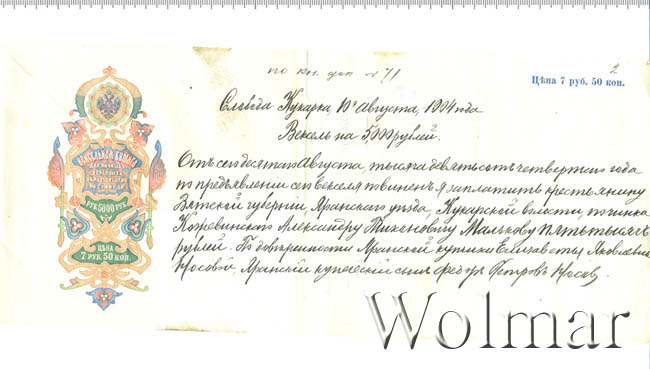 2
по кн. деп. № 71
Цѣна 7 руб. 50 коп.
Слобода Кукарка, 10го Августа, 1904 года
Вексель на 5000 рублей.
Отъ сего десятаго Августа, тысяча девятьсотъ четвертаго года
по предъявленіи сего векселя повиненъ я заплатить крестьянину
Вятской губерніи, Яранскаго уѣзда, Кукарской волости, починка
Александру Тихоновичу Малькову пять тысячъ
рублей. По довѣренности Яранской купчихи Елизаветы Яковлевны
Носовой Яранскій купеческій сынъ Федоръ Петровъ Носовъ
РУБ 5000 РУБ
ЦѢНА
7 РУБ. 50 КОП.
Wolmar